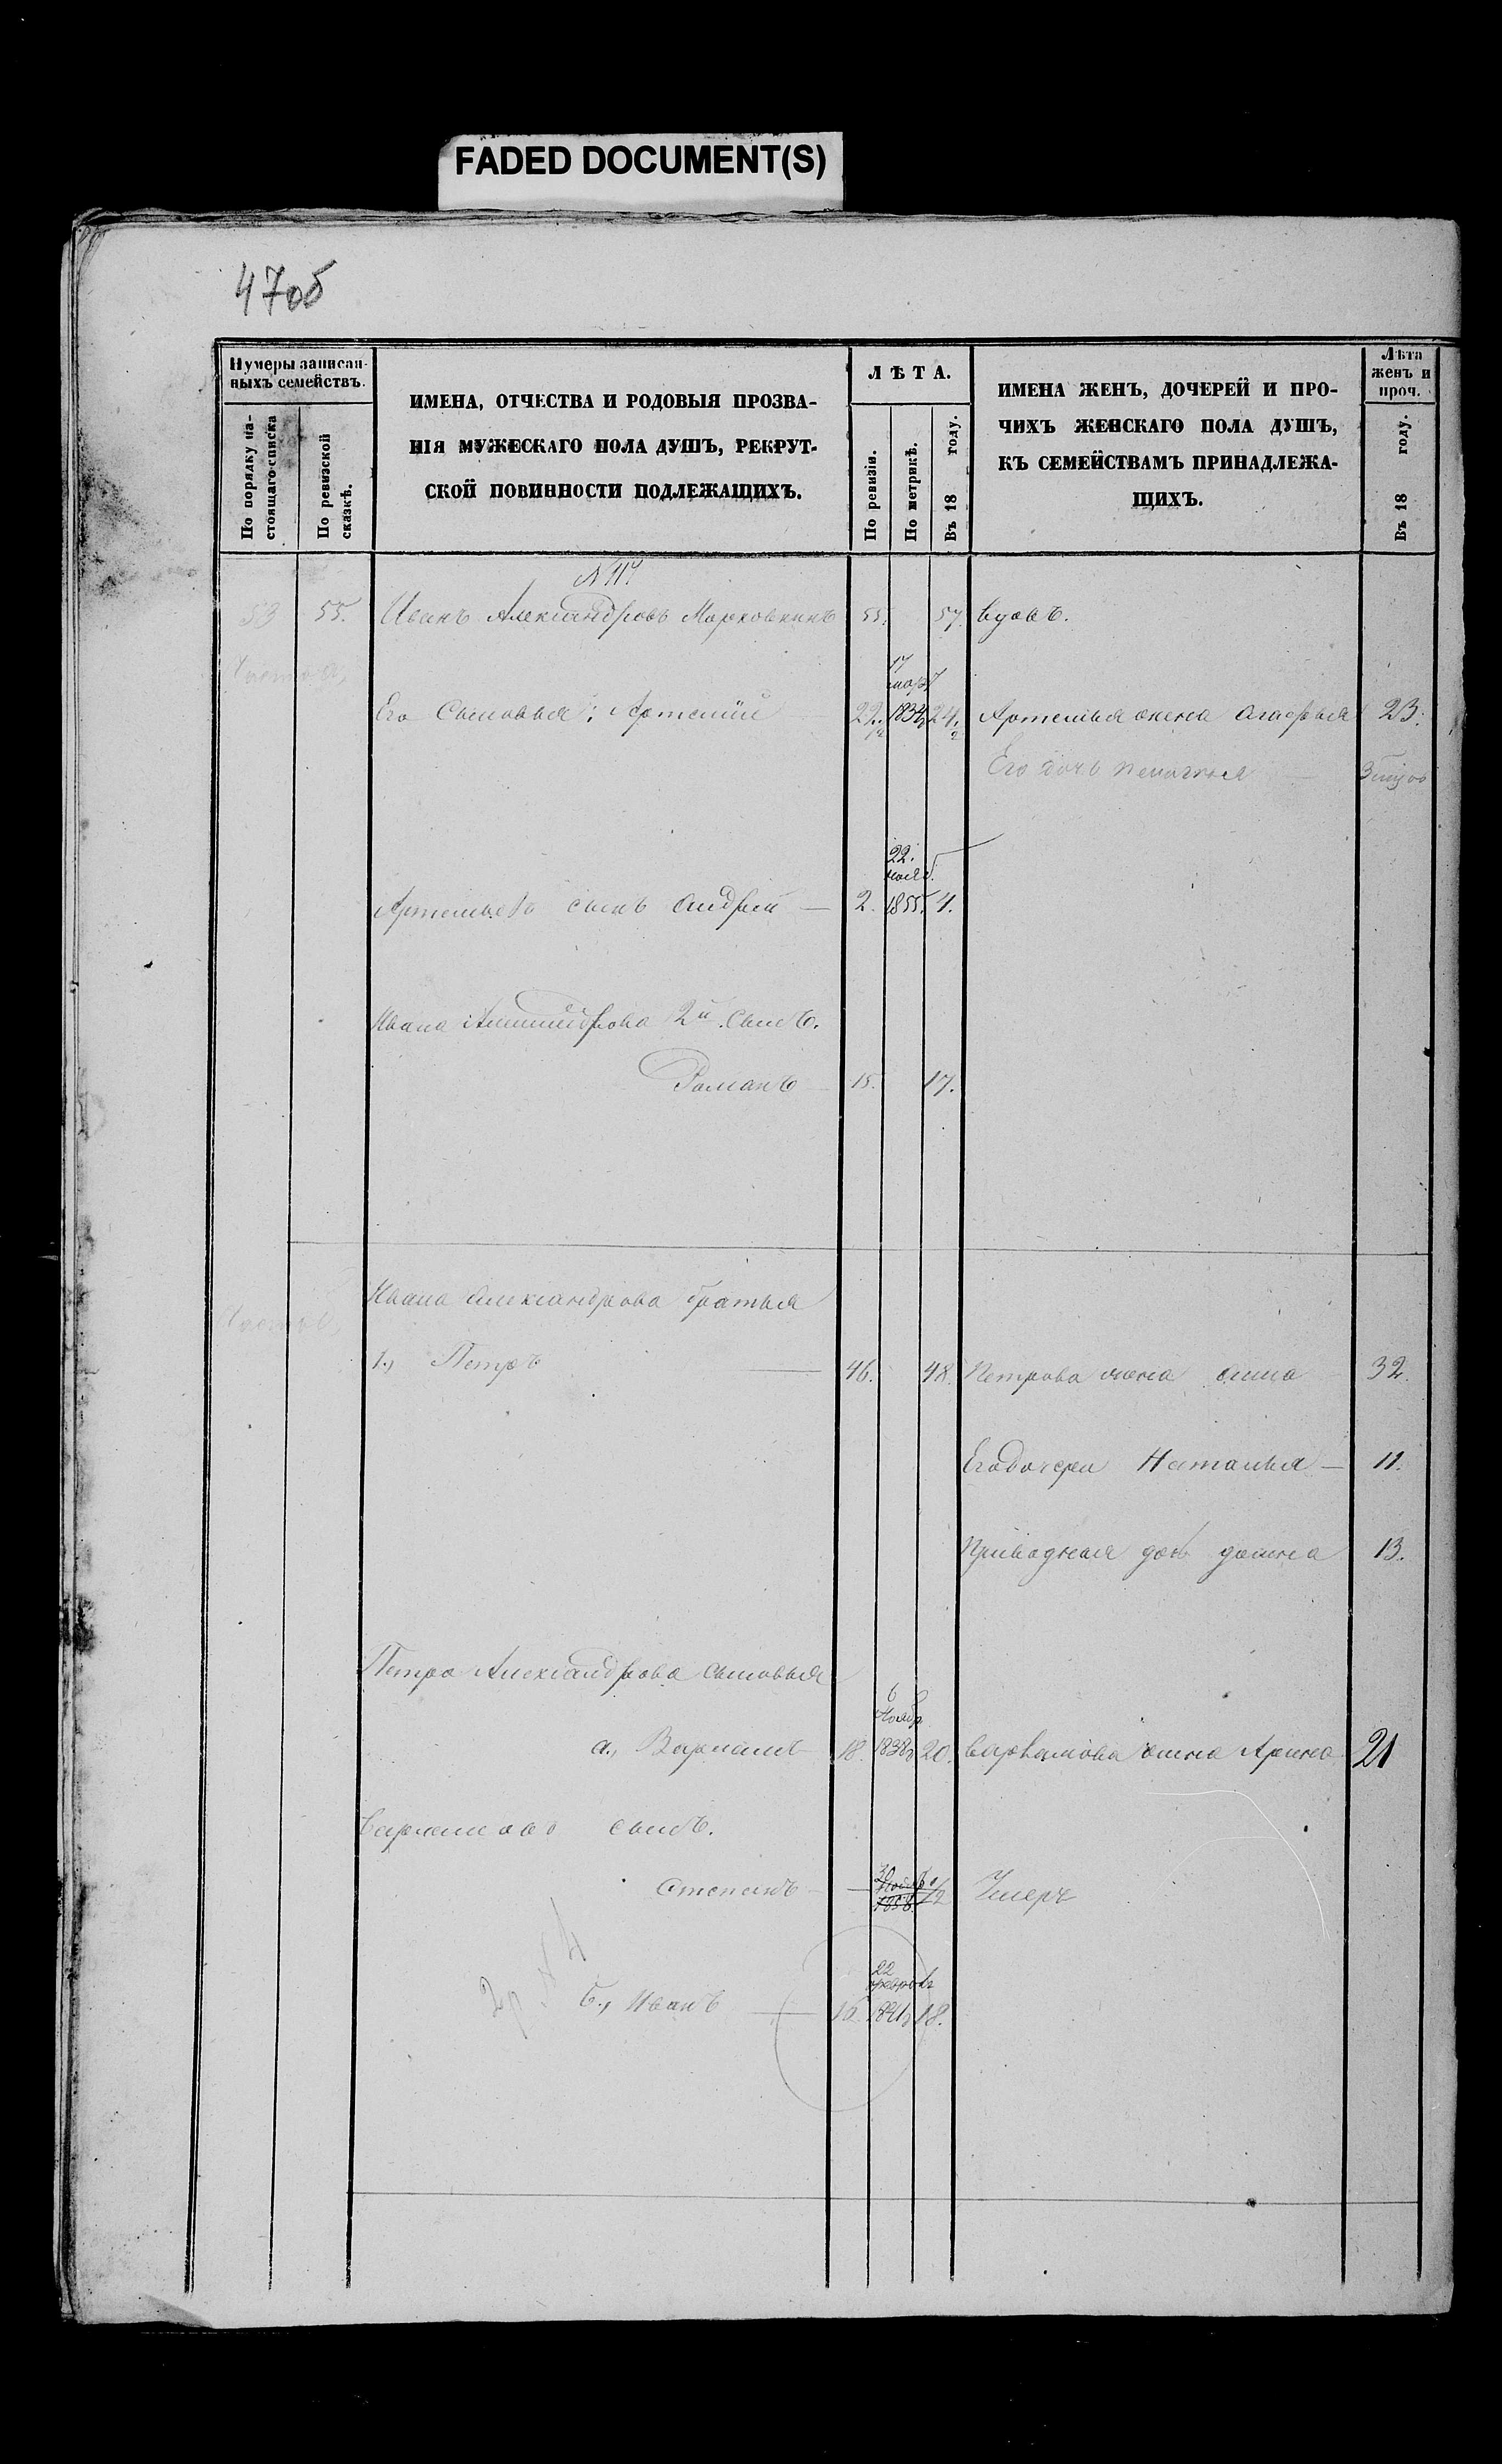 FADED DOCUMENT(S)
47об
Нумеры записан-
ныхъ семействъ.
По порядку на-
стоящаго списка
По ревизской
сказкѣ.
ИМЕНА, ОТЧЕСТВА И РОДОВЫЯ ПРОЗВА-
НІЯ МУЖЕСКАГО ПОЛА ДУШЪ, РЕКРУТ-
СКОЙ ПОВИННОСТИ ПОДЛЕЖАЩИХЪ.
ЛѢТА.
По ревизіи.
По метрикѣ.
Въ 18 году.
ИМЕНА ЖЕНЪ, ДОЧЕРЕЙ И ПРО-
ЧИХЪ ЖЕНСКАГО ПОЛА ДУШЪ,
КЪ СЕМЕЙСТВАМЪ ПРИНАДЛЕЖА-
ЩИХЪ.
Лѣта
женъ и
проч.
Въ 18 году.
53 55. Иванъ Александровъ Морковкинъ 55. 57. вдовъ.
17
март
Его Сыновья: Артемій 22. 1/2 1834 24. 1/2 Артемья жена Агафья 23.
Его дочь
22.
нояб.
Артемьева сынъ Андрей — 2. 1855. 4.
Ивана Александрова 2й сынъ.
Романъ — 15. 17.
Ивана Александрова братья
1., Петръ — 46. 48. Петрова жена Анна 32.
Его дочери Наталья — 11.
Приводная дочь 13.
Петра Александрова сыновья
6
Ноябр
а., Варламъ 18. 1838 20. Варламова жена Арина 21
Варламова сынъ.
Степанъ — 1858. 1/2 Умеръ
22
февраля
б., Иванъ — 16. 1841 18.